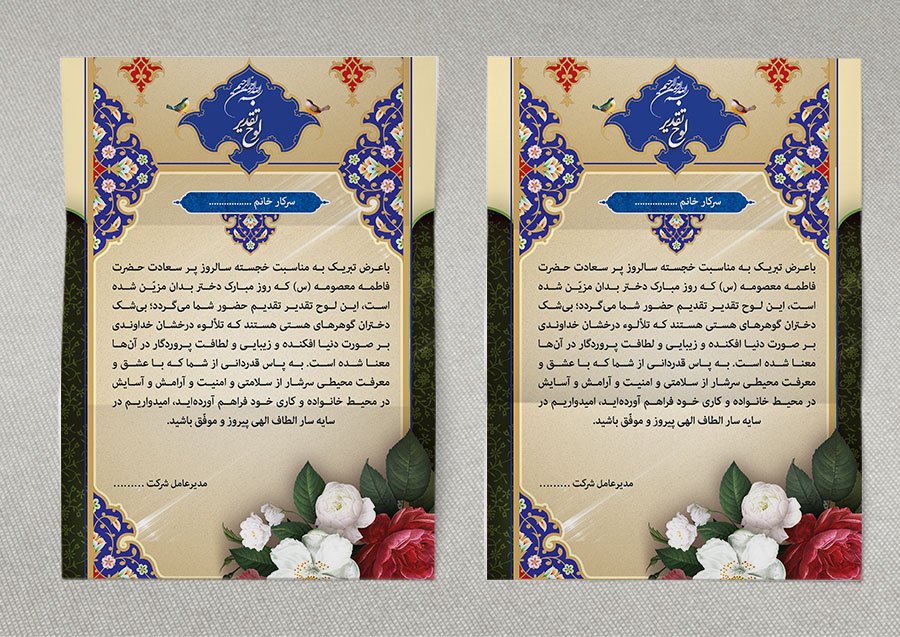 بسم الله الرحمن الرحیم
لوح تقدیر
سرکار خانم ................
باعرض تبریک به مناسبت خجسته سالروز پر سعادت حضرت
فاطمه معصومه (س) که روز مبارک دختر بدان مزیّن شده
است، این لوح تقدیر تقدیم حضور شما می‌گردد؛ بی‌شک
دختران گوهرهای هستی هستند که تلألوء درخشان خداوندی
بر صورت دنیا افکنده و زیبایی و لطافت پروردگار در آن‌ها
معنا شده است. به پاس قدردانی از شما که با عشق و
معرفت محیطی سرشار از سلامتی و امنیت و آرامش و آسایش
در محیط خانواده و کاری خود فراهم آورده‌اید، امیدواریم در
سایه سار الطاف الهی پیروز و موفّق باشید.
مدیرعامل شرکت .........
بسم الله الرحمن الرحیم
لوح تقدیر
سرکار خانم ................
باعرض تبریک به مناسبت خجسته سالروز پر سعادت حضرت
فاطمه معصومه (س) که روز مبارک دختر بدان مزیّن شده
است، این لوح تقدیر تقدیم حضور شما می‌گردد؛ بی‌شک
دختران گوهرهای هستی هستند که تلألوء درخشان خداوندی
بر صورت دنیا افکنده و زیبایی و لطافت پروردگار در آن‌ها
معنا شده است. به پاس قدردانی از شما که با عشق و
معرفت محیطی سرشار از سلامتی و امنیت و آرامش و آسایش
در محیط خانواده و کاری خود فراهم آورده‌اید، امیدواریم در
سایه سار الطاف الهی پیروز و موفّق باشید.
مدیرعامل شرکت .........